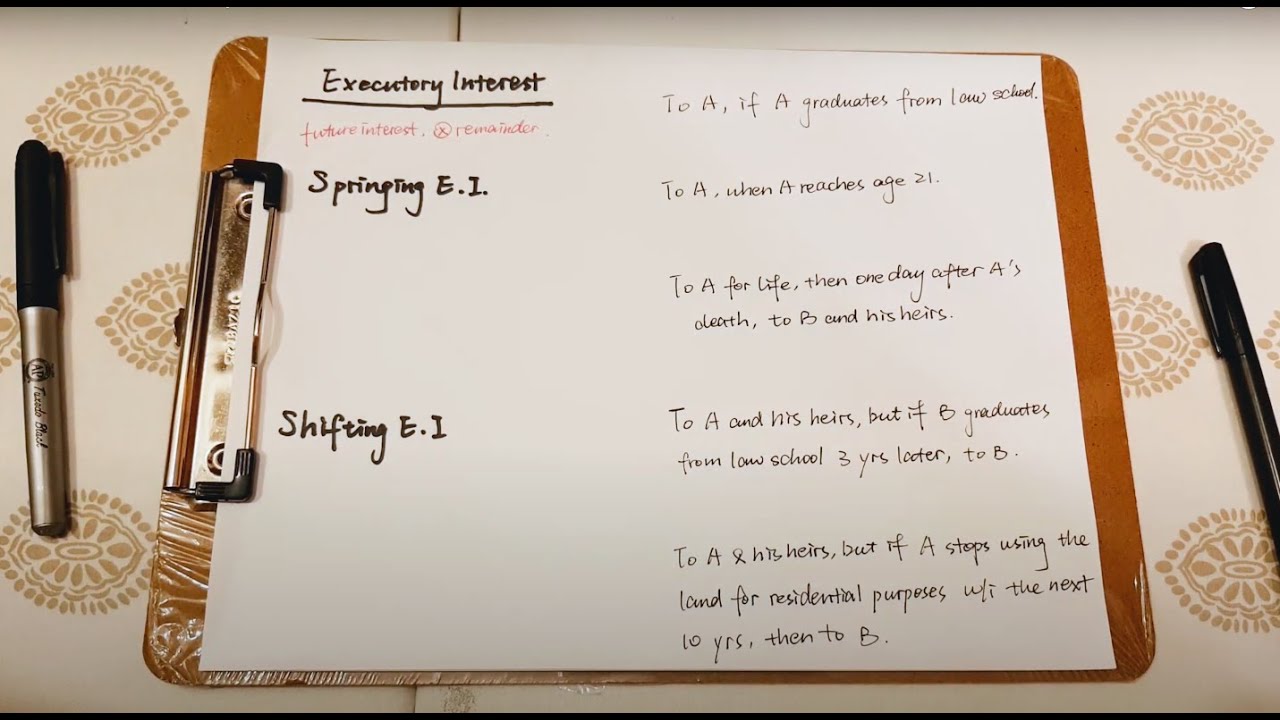 Executory Interest
future interest. ⊗ remainder.
Springing E.I.
To A, if A graduates from law school.
To A, when A reaches age 21.
To A for life, then one day after A's
death, to B and his heirs.
Shifting E.I
To A and his heirs, but if B graduates
from law school 3 yrs later, to B.
To A & his heirs, but if A stops using the
land for residential purposes w/i the next
10 yrs, then to B.
Tuxedo Black